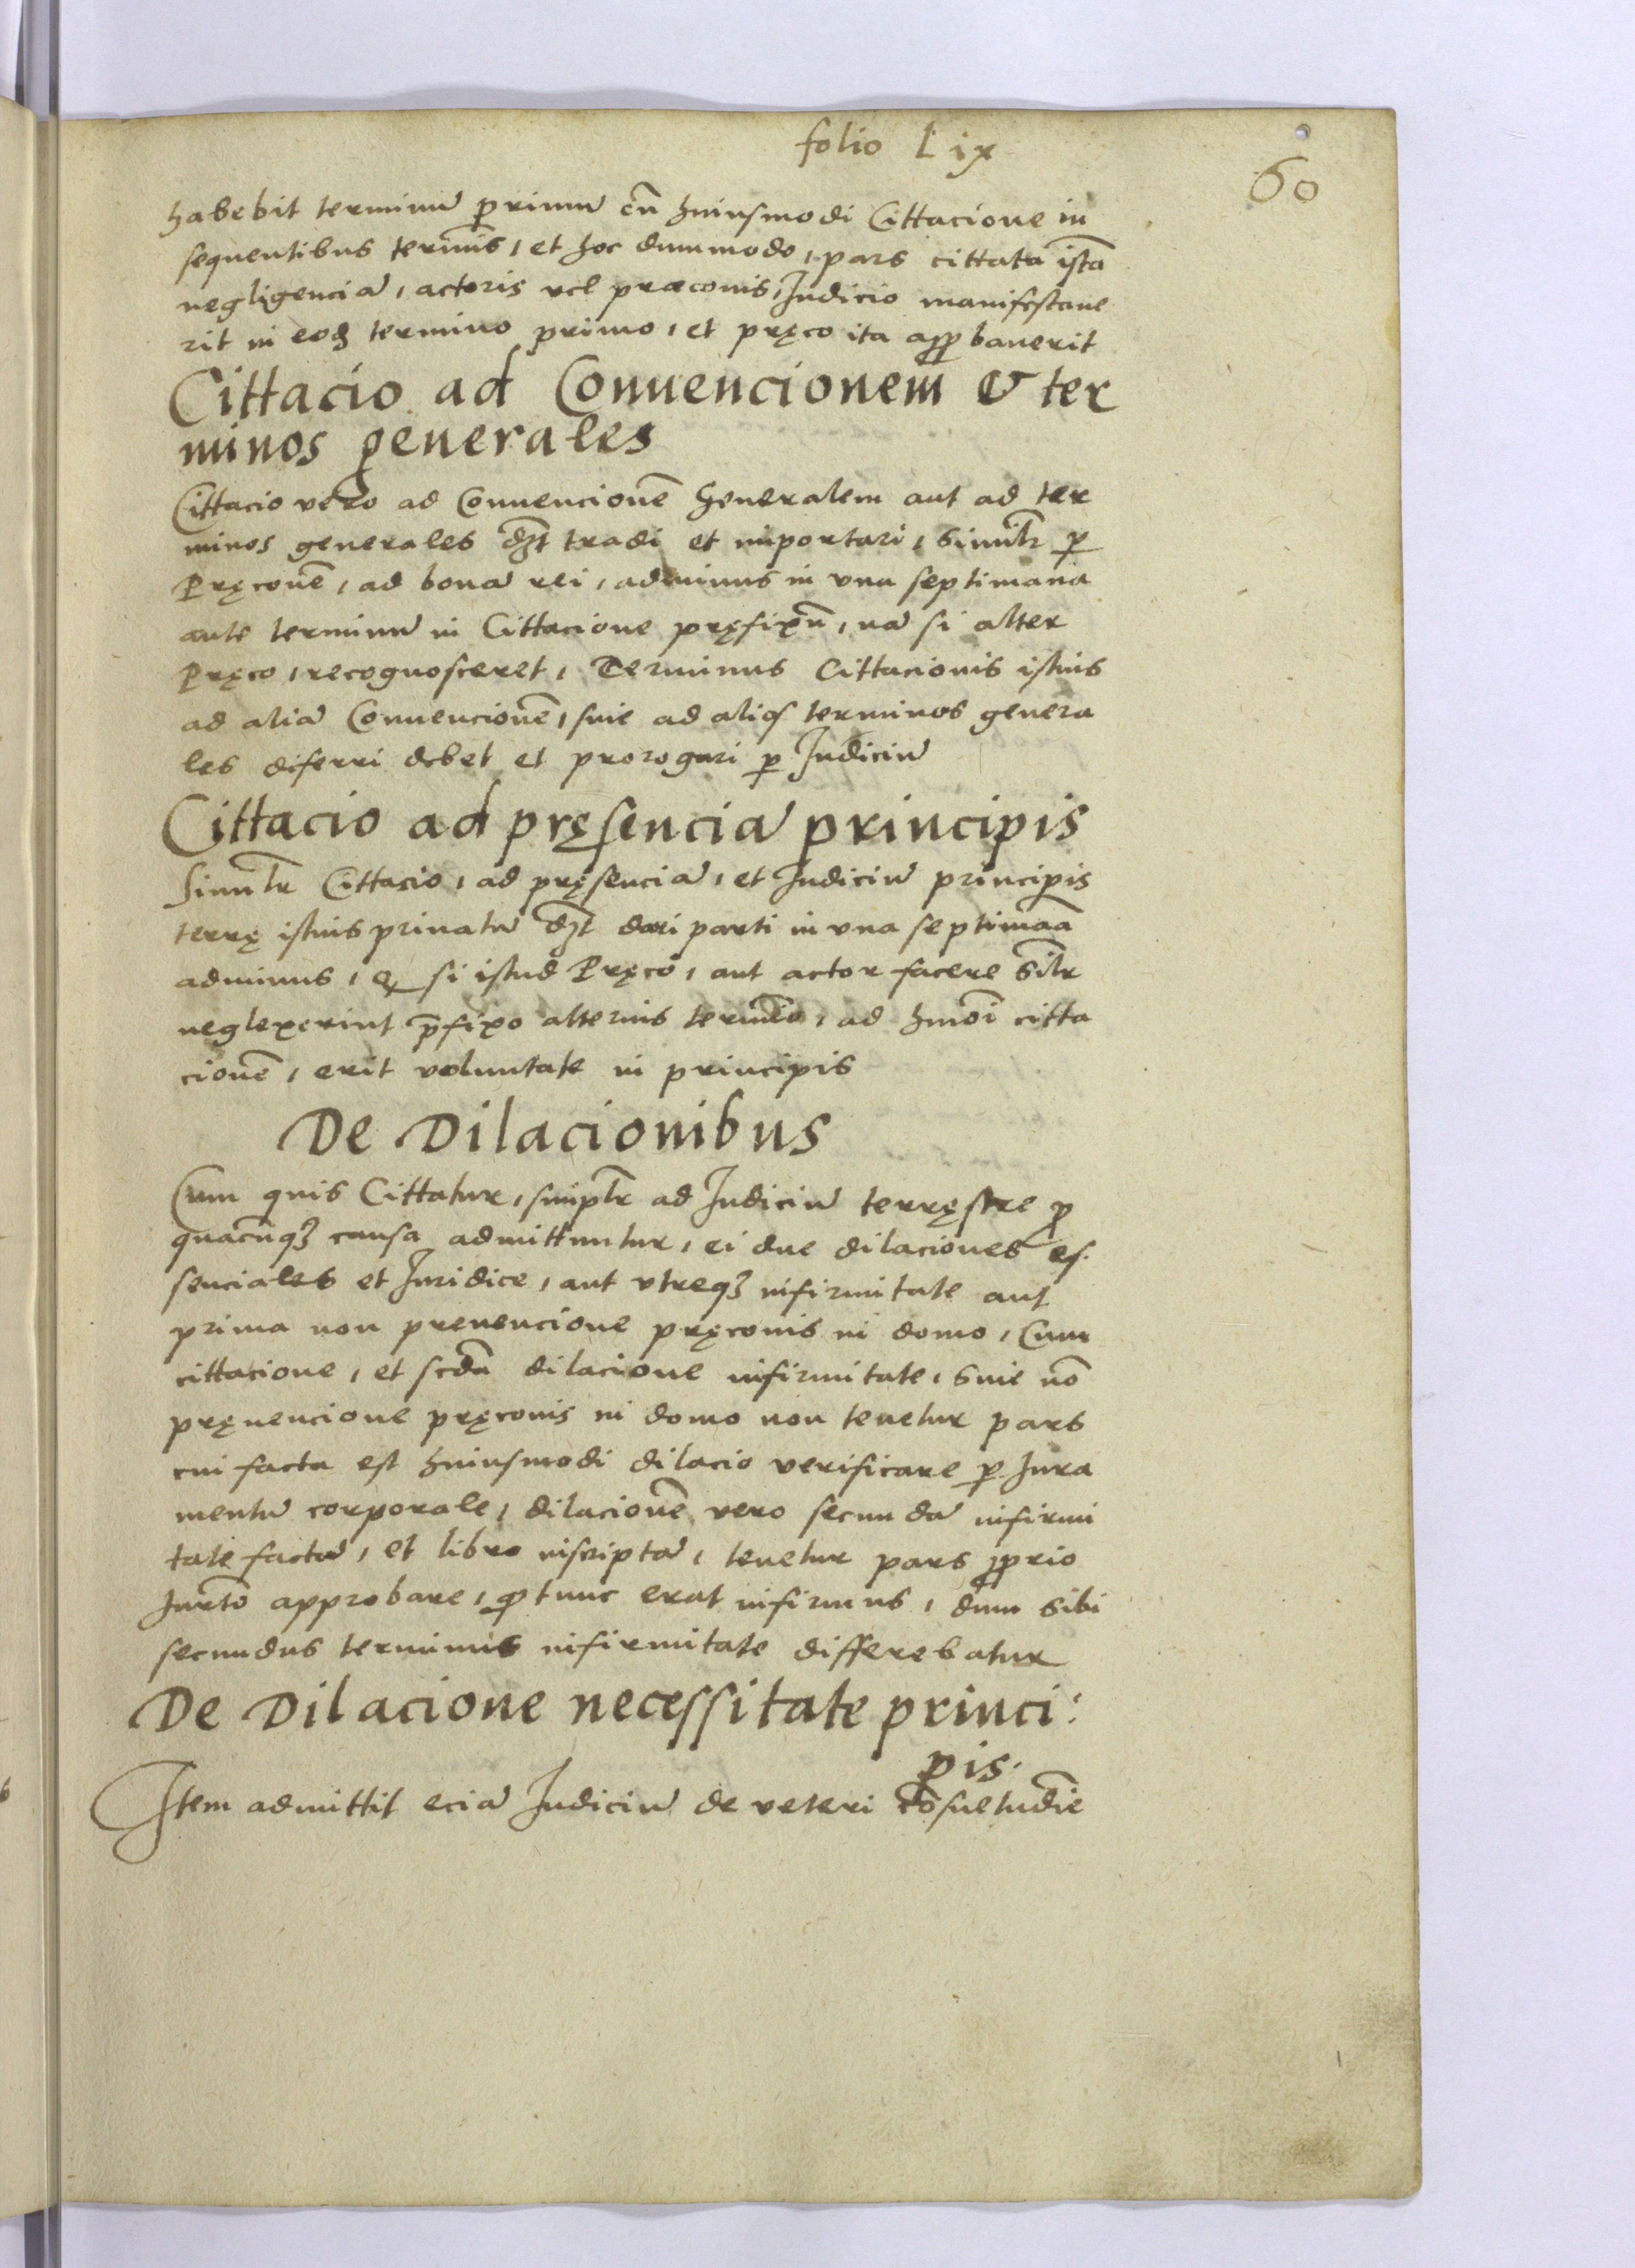 folio Lix
60
habebit terminū primū cū huiusmodi Cittacione in
sequentibus termīis, et hoc dummodo, pars cittata istā
negligenciā, actoris vel præconis, Judicio manifestaue
rit in eodȝ termino primo, et pręco ita approbauerit
Cittacio ad Conuencionem̄ & ter
minos generales
Cittacio vero ad Conuencionē Generalem aut ad ter
minos generales dȝt tradi et importari, similr̄ ꝑ
Pręconē, ad bona rei, adminus in vna septimana
ante terminū in Cittacione pręfixū, nā si alter
Pręco, recognosceret, Terminus Cittacionis istius
ad aliā Conuencionē, siue ad alios terminos genera
les diferri debet et prorogari ꝑ Judiciū
Cittacio ad pręsenciā principis
Similr̄ Cittacio, ad pręsenciā, et Judiciū principis
terrę istius priuatū dȝt dari parti in vna septimaā
adminus, & si istud Pręco, aut actor facere silr̄
neglexerint p̄fixo alterius termīo, ad hmōi citta
cionē, erit voluntate in principis
De Dilacionibus
Cum quis Cittatur, simplr̄ ad Judiciū terręstre ꝓ
quacūqȝ causa admittuntur, ei due dilaciones es.
senciales et Juridice, aut vtreqȝ infirmitate aut
prima non preuencione pręconis in domo, Cum
cittacione, et scdā dilacione infirmitate, siue nō
pręuencione pręconis in domo non tenetur pars
cui facta est huiusmodi dilacio verificare ꝑ Jura
mentū corporale, dilacionē vero secundā infirmi
tate factā, et libro inscriptā, tenetur pars ꝓprio
Jurtō approbare, ꝙ tunc erat infirmus, dum sibi
secundus terminus infirmitate differebatur
De Dilacione necessitate princi:
pis.
Item admittit eciā Judiciū de veteri cōsuetudīe